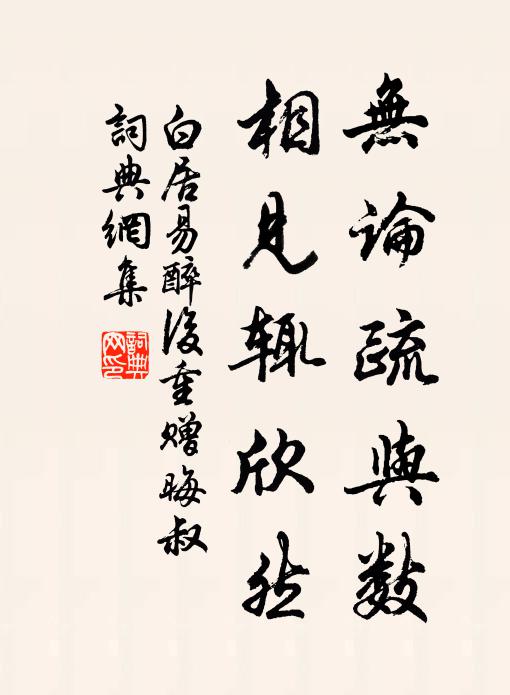 無論疏與數
相見輒欣然
白居易醉後重贈晦叔
詞典網集
詞典網印